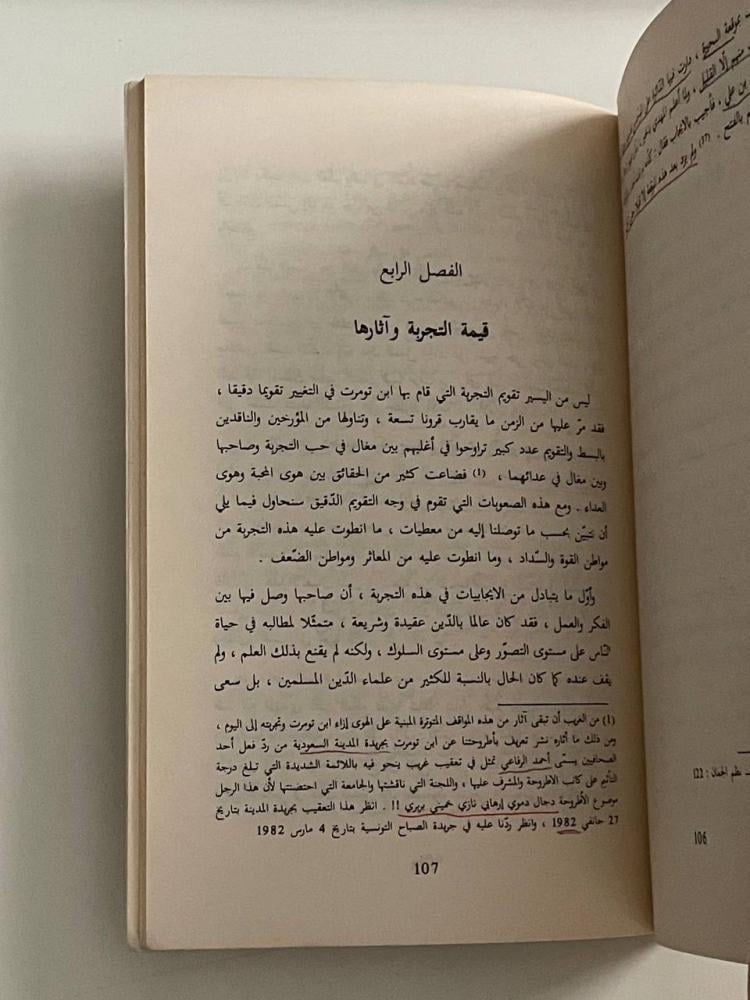 الفصل الرابع
قيمة التجربة وآثارها
ليس من اليسير تقويم التجربة التي قام بها ابن تومرت في التغيير تقويما دقيقا ،
فقد مرّ عليها من الزمن ما يقارب قرونا تسعة ، وتناولها من المؤرخين والناقدين
بالبسط والتقويم عدد كبير تراوحوا في أغلبهم بين مغال في حب التجربة وصاحبها
وبين مغال في عدائهما ، (1) فضاعت كثير من الحقائق بين هوى المحبة وهوى
العداء . ومع هذه الصعوبات التي تقوم في وجه التقويم الدّقيق سنحاول فيما يلي
أن نتبيّن بحسب ما توصلنا إليه من معطيات ، ما انطوت عليه هذه التجربة من
مواطن القوة والسّداد ، وما انطوت عليه من المعاثر ومواطن الضّعف .
وأوّل ما يتبادل من الايجابيات في هذه التجربة ، أن صاحبها وصل فيها بين
الفكر والعمل ، فقد كان عالما بالدّين عقيدة وشريعة ، متمثّلا لمطالبه في حياة
النّاس على مستوى التصوّر وعلى مستوى السلوك ، ولكنه لم يقنع بذلك العلم ، ولم
يقف عنده كما كان الحال بالنسبة للكثير من علماء الدّين المسلمين ، بل سعى
(1) من الغريب أن تبقى آثار من هذه المواقف المتوترة المبنية على الهوى إزاء ابن تومرت وتجربته إلى اليوم ،
ومن ذلك ما أثاره نشر تعريف بأطروحتنا عن ابن تومرت بجريدة المدينة السعودية من ردّ فعل أحد
الصحافيين يسمّى أحمد الرفاعي تمثل في تعقيب غريب ينحو فيه باللائمة الشديدة التي تبلغ درجة
التأثيم على كاتب الاطروحة والمشرف عليها ، واللجنة التي ناقشتها والجامعة التي احتضنتها لأن هذا الرجل
موضوع الأطروحة دجال دموي إرهابي نازي خميني بربري !! . انظر هذا التعقيب بجريدة المدينة بتاريخ
27 جانفي 1982 ، وانظر ردّنا عليه في جريدة الصباح التونسية بتاريخ 4 مارس 1982
107
نظم الجمان : 122
106